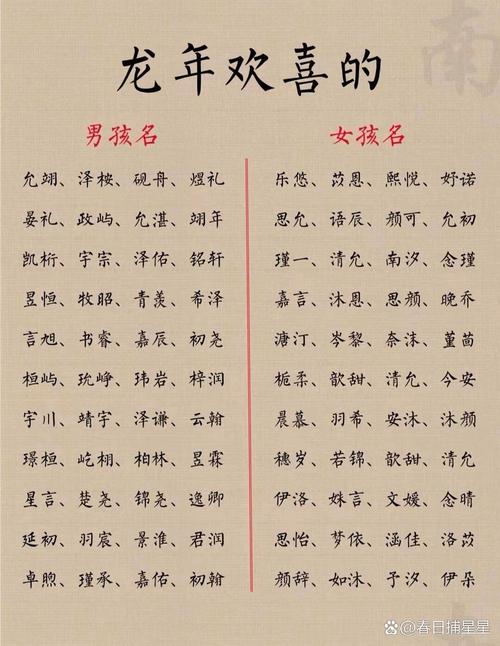 龙年欢喜的
男孩名
允翊、泽桉、砚舟、煜礼
晏礼、政屿、允湛、翊年
凯桁、宇宗、泽佑、铭轩
昱恒、牧昭、青羡、希泽
言旭、书睿、嘉辰、初尧
桓屿、玧峥、玮岩、梓润
宇川、靖宇、泽谦、云翰
璟桓、屹栩、柏林、昱霖
星言、楚尧、锦尧、逸卿
延初、羽宸、景淮、君润
卓煦、瑾承、嘉佑、初翰
女孩名
乐悠、苡恩、熙悦、妤诺
思允、语辰、颜可、允初
瑾一、清允、南汐、念瑾
嘉言、沐恩、思颜、晚乔
溏汀、岑黎、奈沫、堇茴
栀柔、歆甜、清允、今安
晨慕、羽希、安沐、沐颜
穗岁、若锦、歆甜、清允
伊洛、姝言、文媛、念晴
思怡、梦依、涵佳、洛苡
颜辞、如沐、予汐、伊朵
南
@春日捕星星